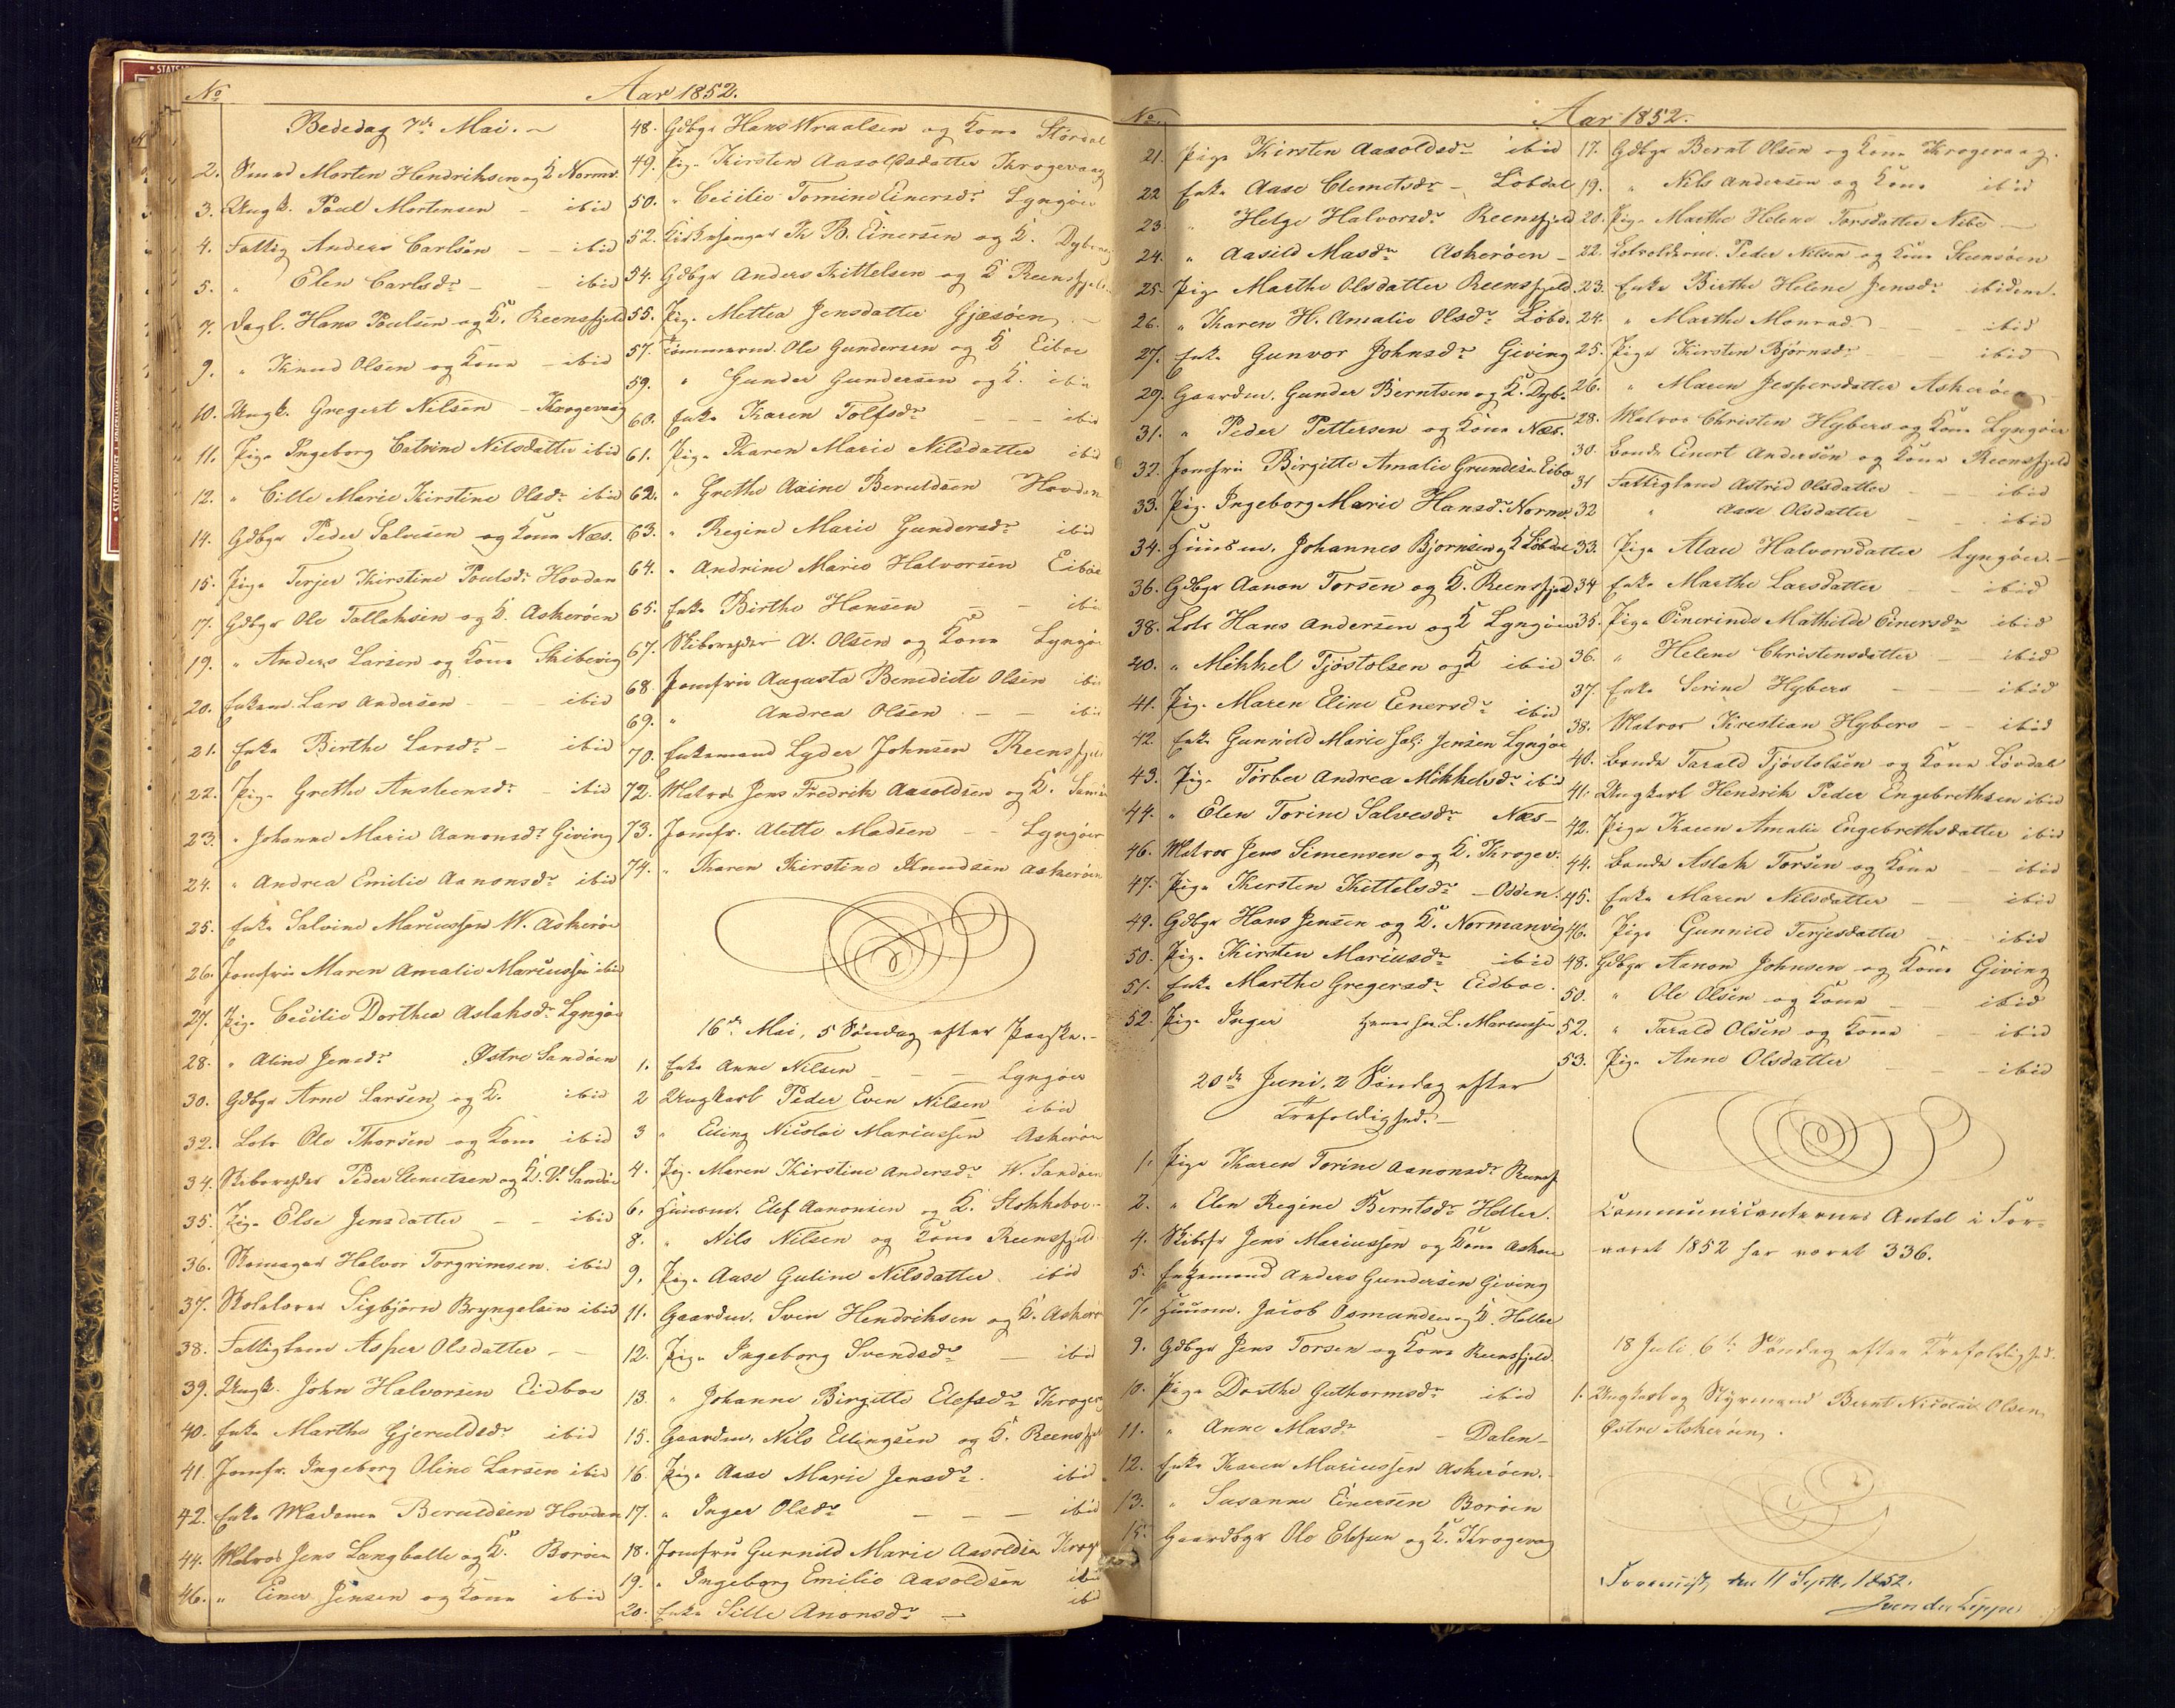 No
Aar 1852.
Bededag 7de Mai.
2. Smed Morten Hendriksen og K Normv.
3. Ungk. Poul Mortensen - ibid
4. Fattig Anders Carlsen - - ibid
5. " Elen Carlsdr - - ibid
7. Dagl. Hans Poulsen og K. Reensfjeld
9. " Knud Olsen og Kone - ibid
10. Ungk. Gregert Nilsen - Krogevaag
11. Pige Ingeborg Catrine Nilsdatter ibid
12. " Cille Marie Kirstine Olsdr ibid
14. Gdbgr Peder Salvesen og Kone Næs.
15. Pige Terjer Kirstine Poulsdr Hovden
17. Gdbgr Ole Tallaksen og K. Askerøen
19. " Anders Larsen og Kone Skibevig
20. Enkem. Lars Andersen - - - ibid
21. Enke Birthe Larsdr - ibid
22. Pige Grethe Austeensdr - ibid
23. " Johanne Marie Aanonsdr Giving
24. " Andrea Emilie Aanonsdr ibid
25. Enke Salvine Mariussen W. Askerøe
26. Jomfru Maren Amalie Mariussen ibid
27. Pige Cecilie Dorthea Aslaksdr Lyngøe
28. " Aline Jensdr Østre Sandøen
30. Gdbgr Arne Larsen og K. ibid
32. Lods Ole Thorsen og Kone ibid
34. Skibsreder Peder Clemetsen og K. V. Sandøe
35. Pige Else Jensdatter - - ibid
36. Skomager Halvor Torgrimsen ibid
37. Skolelærer Sigbjørn Bryngelsen ibid
38. Fattiglem Asper Olsdatter - -
39. Ungk. John Halvorsen Eidboe
40. Enke Marthe Gjeruldsdr ibid
41. Jomfr. Ingeborg Oline Larsen ibid
42. Enke Madame Beruldsen Hovden
44. Matros Jens Langballe og K. Borøen
46. " Einer Jensen og Kone ibid
48. Gdbgr Hans Wraalsen og Kone Størdal
49. Pige Kirsten Aasoldsdatter Krogevaag
50. " Cecilie Tomine Einersdr Lyngøer
52. Kirkesanger Th B. Einersen og K. Dybvaag
54. Gdbgr Anders Kittelsen og K Reensfjeld
55. Pig. Mettea Jensdatter Gjæsøen -
57. Tømmerm. Ole Gundersen og K Eiboe
59. " Gunder Gundersen og K. ibid
60. Enke Karen Tolfsdr - - - ibid
61. Pige Karen Marie Nilsdatter ibid
62. " Grethe Axine Beruldsen Hovden
63. " Regine Marie Gundersdr ibid
64. " Andrine Marie Halvorsen Eiboe
65. Enke Birthe Hansen - - ibid
67. Skibsreder A. Olsen og Kone Lyngøe
68. Jomfru Augusta Benedicte Olsen ibid
69. " Andrea Olsen - - ibid
70. Enkemand Lyder Johnsen Reensfjeld
72. Matros Jens Fredrik Aasoldsen og K.
73. Jomfr. Alette Madsen - - Lyngøer
74. " Karen Kirstine Knudsen Askerøen
16de Mai, 5 Søndag efter Paaske.-
1. Enke Anne Nilsen - - - Lyngøer
2 Ungkarl Peder Even Nilsen ibid
3 " Elling Nicolai Mariussen Askerøen
4. Pig. Maren Kirstine Andersdr W. Sandøen
6. Huusm. Elef Aanonsen og K. Stokkeboe
8. " Nils Nilsen og Kone Reensfjeld
9. Pige Aase Guline Nilsdatter ibid
11. Gaardm. Sven Hendriksen og K. Askerø
12. Pige Ingeborg Svendsdr - ibid
13. " Johanne Birgitte Elefsdr Krogev
15. Gaardm. Nils Ellingsen og K. Reensfjel
16. Pige Aase Marie Jensdr ibid
17. " Inger Olsdr - - - ibid
18. Jomfru Gunnild Marie Aasoldsen Krog
19. " Ingeborg Emilie Aasoldsen ibid
20. Enke Sille Anonsdr - ibid
No
Aar 1852.
21. Pige Kirsten Aasoldsdr ibid
22 Enke Aase Clemetsdr - Løbdal
23 " Helge Halvorsdr Reensfjeld
24. " Aasild Masdr Askerøen -
25 Pige Marthe Olsdatter Reensfjeld
26. " Karen H. Amalie Olsdr Løbd.
27. Enke Gunvor Johnsdr Giving
29. Gaardm. Gunder Berntsen og K. Dybv.
31. " Peder Pettersen og Kone Næs.
32. Jomfru Birgitte Amalie Grundesen Eibo
33. Pig. Ingeborg Marie Hansdr Normv.
34. Huusm. Johannes Bjørnsen og K Løbdal
36. Gdbgr Aanon Torsen og K. Reensfjeld
38. Lods Hans Andersen og K Lyngøer
40. " Mikkel Tjøstolsen og K ibid
41. Pig. Maren Eline Einersdr ibid
42. Enke Gunnild Marie sal. Jensen Lyngøe
43. Pige Torber Andrea Mikkelsdr ibid
44. " Elen Torine Salvesdr Næs -
46. Matros Jens Simensen og K. Krogev.
47. Pige Kersten Kittelsdr - Odden.
49. Gdbgr Hans Jensen og K. Normanvig
50. Pig. Kirsten Mariusdr ibid
51. Enke Marthe Gregersdr Eidboe.
52. Pig. Inger hos L. Mariussen
20de Juni, 2 Søndag efter
Trefoldighed.-
1. Pige Karen Torine Aanonsdr Reensf
2. " Elen Regine Berntsdr Holler.
4. Skibsfr Jens Mariussen og Kone Askerø
5. Enkemand Anders Gundersen Giving
7. Huusm. Jacob Osmundsen og K. Holler
9. Gdbgr Jens Torsen og Kone Reensfjeld.
10. Pige Dorthe Guthormsdr ibid
11. " Anne Masdr - Dalen -
12. Enke Karen Mariussen Askerøen.-
13. " Susanne Einersen Borøen
15. Gaardbgr Ole Elefsen og K. Krogevaag
17. Gdbgr Bernt Olsen og Kone Krogevaag.
19. " Nils Andersen og Kone ibid
20. Pige Marthe Helene Torsdatter Nibo -
22. Peder Nilsen og Kone Steensøen
23. Enke Birthe Helene Jensdr ibidem.
24. " Marthe Monrad - - ibid
25. Pige Kirsten Bjørnsdr - - ibid
26. " Maren Jespersdatter Askerøen
28. Matros Christen Hybers og Kone Lyngøer
30. Bonde Einert Andersen og Kone Reensfjeld
31 Fattiglem Astrid Olsdatter - - ibid
32 " Aase Olsdatter - - ibid
33. Pige Alau Halvorsdatter Lyngøer -
34 Enke Marthe Larsdatter - - ibid
35. Pige Einerinde Mathilde Einersdr ibid
36. " Helene Christensdatter - - ibid
37. Enke Serine Hybers - - - ibid
38. Matros Krestian Hybers - ibid
40. Bonde Tarald Tjøstolsen og Kone Løvdal
41. Ungkarl Hendrik Peder Engebrethsen ibid
42. Pige Karen Amalie Engebrethsdatter ibid
44. Bonde Aslak Torsen og Kone - - ibid
45. Enke Maren Nilsdatter - - ibid
46. Pige Gunnild Terjesdatter - - ibid
48. Gdbgr Aanon Johnsen og Kone Giving
50. " Ole Olsen og Kone - - ibid
52. " Tarald Olsen og Kone - - ibid
53. Pige Anne Olsdatter - - - ibid
Communicanternes Antal i For-
aaret 1852 har været 336.
18 Juli 6te Søndag efter Trefoldighed.
1. Ungkarl og Styrmand Bernt Nicolai Olsen,
Østre Askerøen.
den 11 Septbr. 1852.